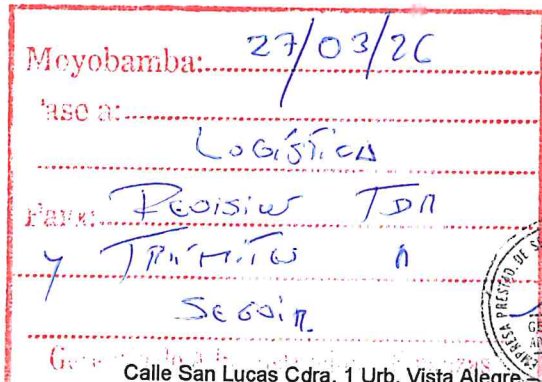 Moyobamba: 27/03/26
Pase a:
LOGÍSTICA
Para: REVISIÓN TDR
Y TRÁMITE A
SEGUIR
Calle San Lucas Cdra. 1 Urb. Vista Alegre –